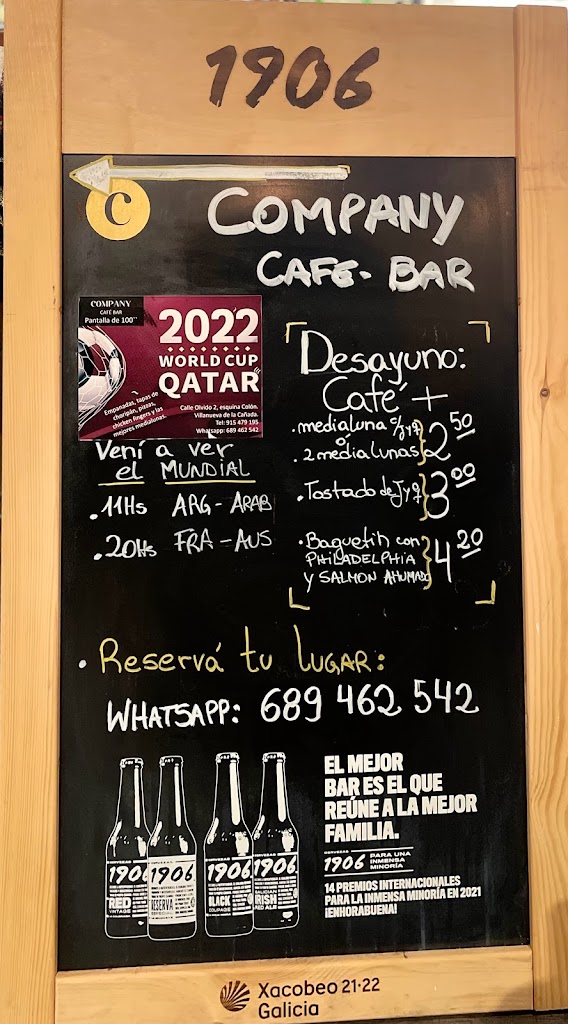 1906
C
COMPANY
CAFE-BAR
COMPANY
CAFÉ BAR
Pantalla de 100``
2022
WORLD CUP
QATAR
Empanadas, tapas de
choripán, pizzas,
chicken fingers y las
mejores medialunas.
Calle Olvido 2, esquina Colón.
Villanueva de la Cañada.
Tel: 915 479 195
Whatsapp: 689 462 542
Vení a ver
el MUNDIAL
.11Hs ARG-ARAB
.20Hs FRA-AUS
Desayuno:
Café +
.medialuna c/JyQ
ó
.2 medialunas
2 50
.Tostado de JyQ
3 00
.Baguetin con
PHILADELPHIA
y SALMON AHUMADO
4 20
.Reservá tu LUGAR:
WHATSAPP: 689 462 542
1906
RED
VINTAGE
1906
RESERVA
ESPECIAL
1906
BLACK
COUPAGE
1906
IRISH
RED ALE
EL MEJOR
BAR ES EL QUE
REÚNE A LA MEJOR
FAMILIA.
CERVEZAS
1906
PARA UNA
INMENSA
MINORÍA
14 PREMIOS INTERNACIONALES
PARA LA INMENSA MINORÍA EN 2021
¡ENHORABUENA!
Xacobeo 21·22
Galicia